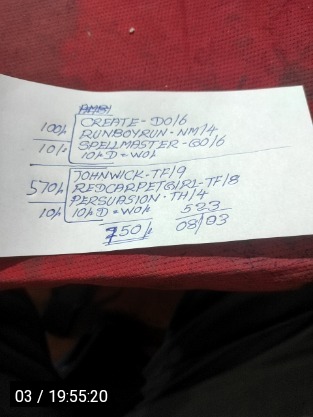 100/-
CREATE - DO/6
RUNBOYRUN - NM/4
10/-
SPELLMASTER - GO/6
10/- D = WO/-
JOHNWICK - TF/9
570/-
REDCARPETGIRL - TF/8
PERSUASION - TH/4
10/-
10/- D = WO/-
523
750/-
08/03
03 / 19:55:20